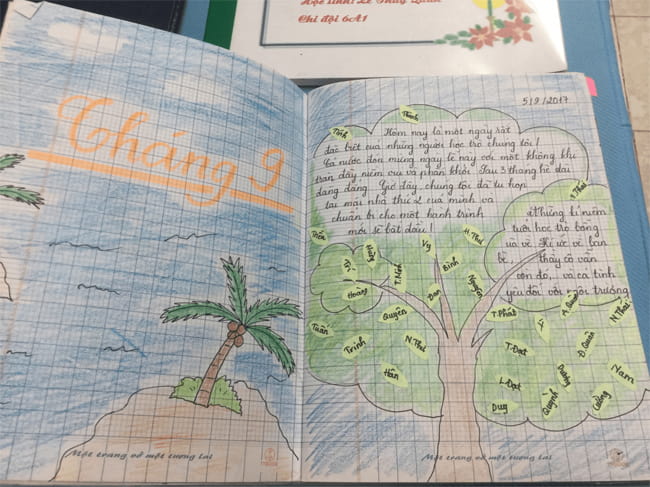 Học sinh: Lê Thuỳ
Chi đội 6A1
Tháng 9
Một trang vở một tương lai
5/9/2017
Hôm nay là một ngày rất
đặc biệt của những người học trò chúng tôi!
Cả nước đón mừng ngày lễ này với một không khí
tràn đầy niềm vui và phấn khởi. Sau 3 tháng hè dài
đằng đẵng. Giờ đây, chúng tôi đã tụ họp
tại mái nhà thứ 2 của mình và
chuẩn bị cho một hành trình
mới sẽ bắt đầu!
Những kỉ niệm
tuổi học trò bỗng
ùa về. Kí ức về bạn
bè, thầy cô vẫn
còn đó,... và cả tình
yêu đối với ngôi trường
Tỉnh
Thành
T.Thái
Tiến
Hoàng
Hoàng
T.Minh
Vy
Bình
H.Thư
Đan
Nguyên
Tuấn
Quyên
Trinh
N.Thư
Hân
T.Phát
Vi
Đ.Quân
N.Thái
T.Đạt
Dương
Nam
L.Đạt
Duy
Quỳnh
Cường
Một trang vở một tương lai